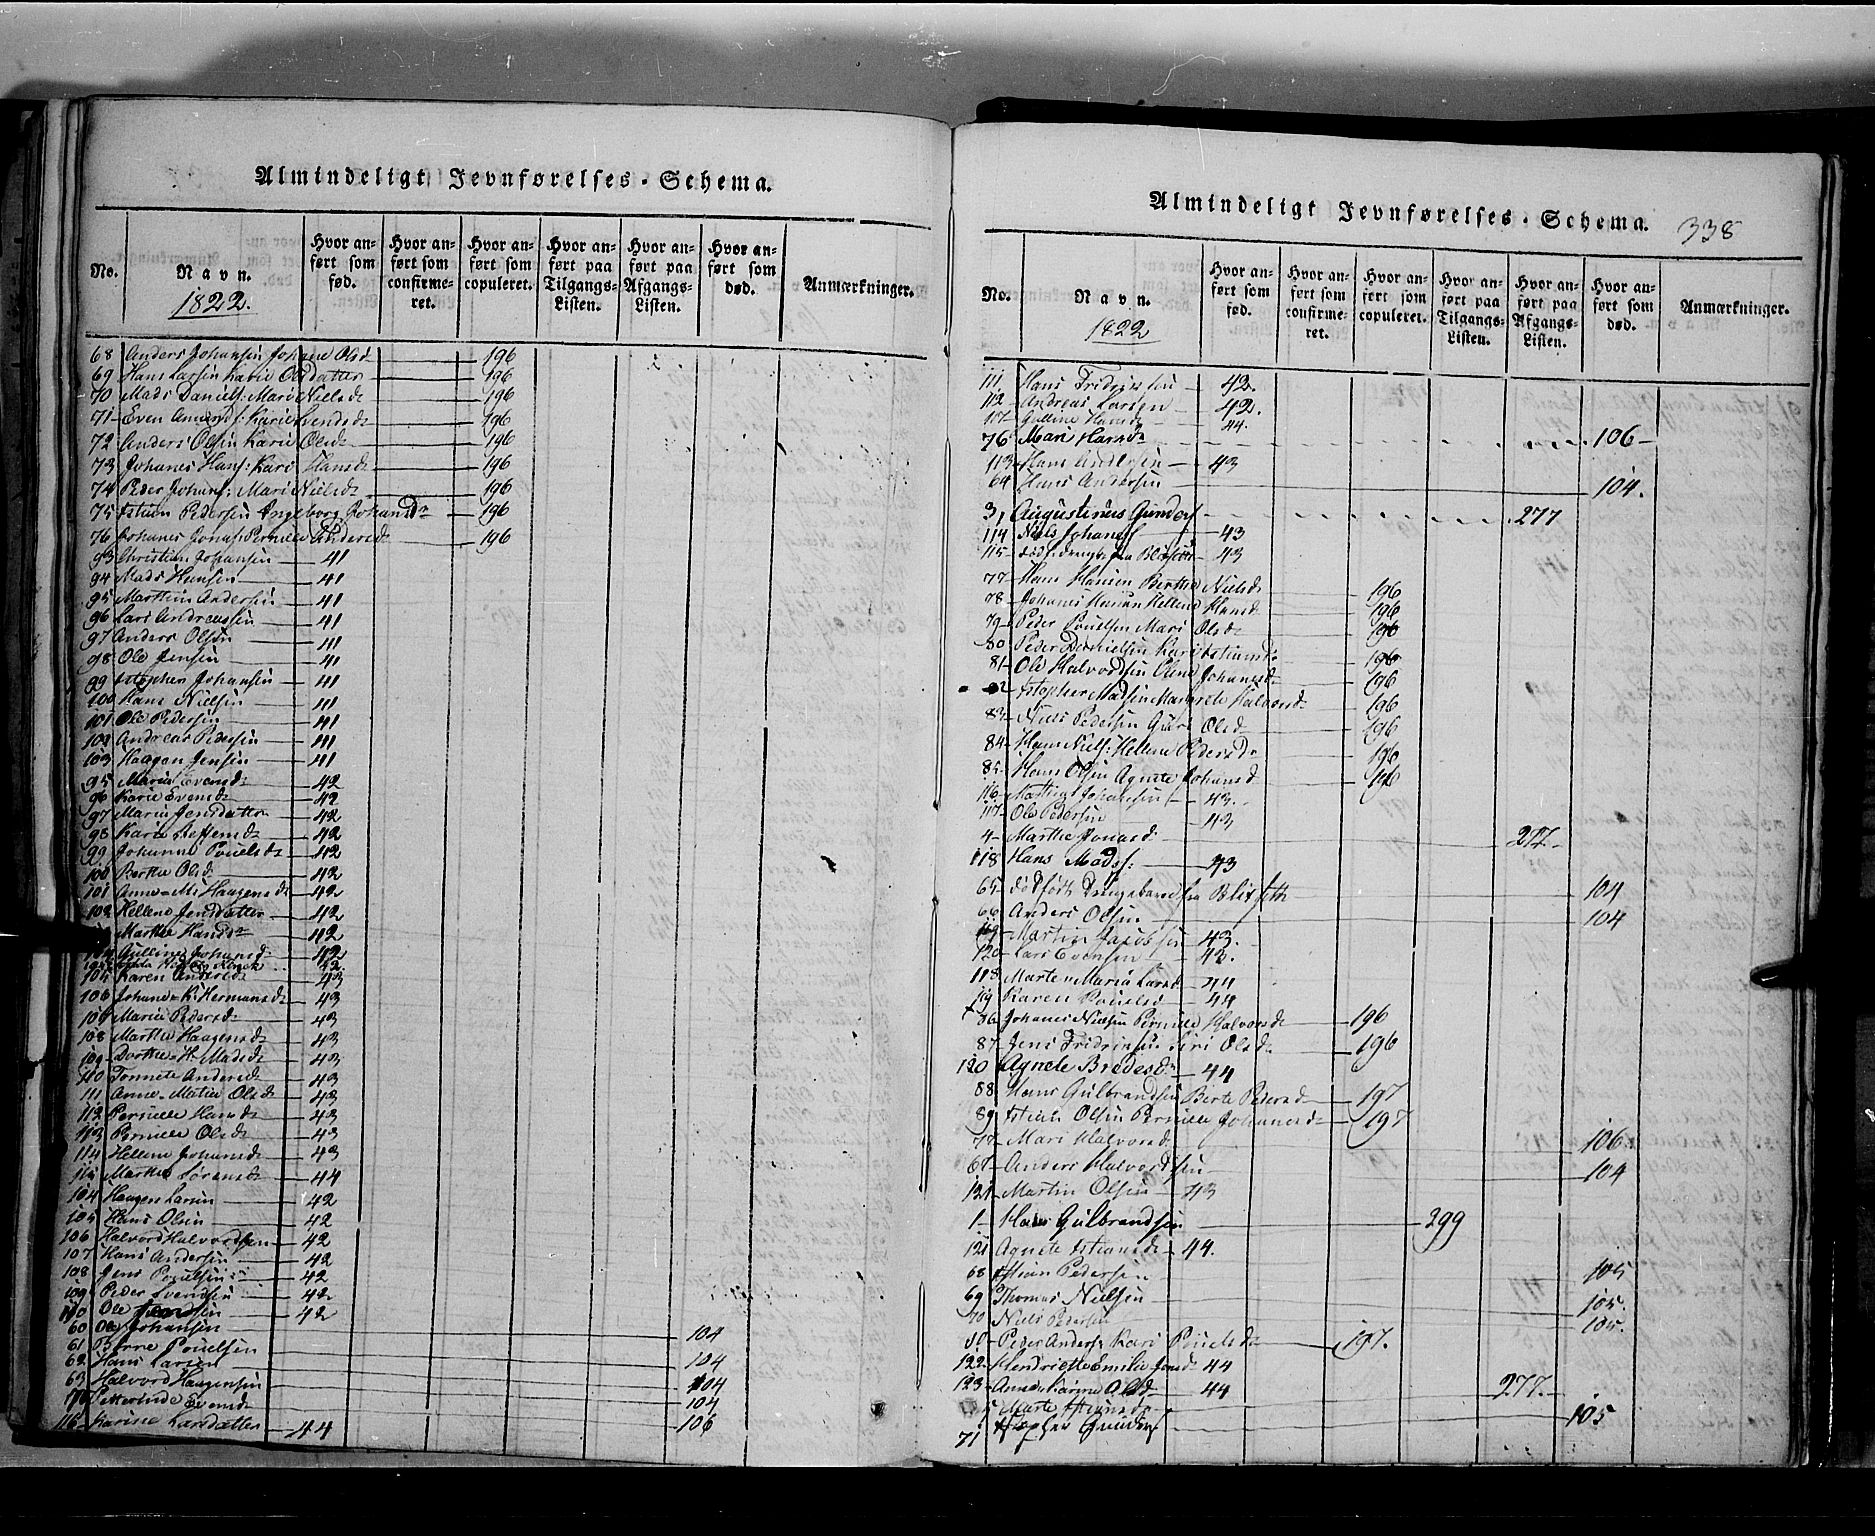 Almindeligt Jevnførelses-Schema.
No. Navn. 1822. Hvor anført som fød. Hvor anført som confirmeret. Hvor anført som copuleret. Hvor anført paa Tilgangs-Listen. Hvor anført paa Afgangs-Listen. Hvor anført som død. Anmærkninger.
68 Anders Johansen Johane Olsd 196
69 Hans Larsen Karie Olsdatter 196
70 Mads Daniels: Mari Nielsd 196
71 Even Amunds: Karie Svendsd 196
72 Anders Olsen Karie Olsd 196
73 Johanes Hans: Kari Hansd 196
74 Peder Johans: Mari Nielsd 196
75 Pedersen Ingeborg Johansdr 196
76 Johanes Jonas: Pernille Andersd 196
93 Christian Johansen 41
94 Mads Hansen 41
95 Marthin Andersen 41
96 Lars Andreassen 41
97 Anders Olsen 41
98 Ole Jensen 41
99 Johansen 41
100 Hans Nielsen 41
101 Ole Pedersen 41
102 Andreas Pedersen 41
103 Haagen Jensen 41
95 Maria Evensd 42
96 Karie Evensd 42
97 Maria Jensdatter 42
98 Karie Steffensd 42
99 Johanne Pouelsd 42
100 Berthe Olsd 42
101 Anne-M: Haagensd 42
102 Hellene Jensdatter 42
Marthe Hansdr 42
104 Gulline Johansd 42
42
105 Karen Andersd 43
106 Johane-K: Hermansd 43
107 Marie Pedersd 43
108 Marthe Haagensd 43
109 Dorthe-H: Madsd 43
110 Tonnete Andersd 43
111 Anne-Matia Olsd 43
112 Pernille Hansd 43
113 Pernille Olsd 43
114 Hellene Johansd 43
115 Marthe Sørensd 44
104 Haagen Larsen 42
105 Hans Olsen 42
106 Halvord Halvordsen 42
107 Hans Andersen 42
108 Jens Pouelsen 42
109 Peder Svendsen 42
110 Ole Svendsen 42
60 Ole Johansen 104
61 Børre Pouelsen 104
62 Hans Larsen 104
63 Halvord Haagensen 104
Petterinde Evensd 106
116 Karine Larsdatter 44
Almindeligt Jevnførelses-Schema. 338
No. Navn. 1822 Hvor anført som fød. Hvor anført som confirmeret. Hvor anført som copuleret. Hvor anført paa Tilgangs-Listen. Hvor anført paa Afgangs-Listen. Hvor anført som død. Anmærkninger.
111 Hans Fridriksen 42.
112 Andreas Larsen 42.
117 Gulline Hansd 44.
76 Mari Hansdr 106
113 Hans Andersen 43
64 Hans Andersen 104.
31 Augustinus Gunders 277
114 Niels Johans 43
115 43
77 Hans Hansen Berthe Nielsd 196
78 Johanes Hansen Hellene Hansd 196
79 Peder Pouelsen Mari Olsd 196
80 Peder Danielsen Kari 196
81 Ole Halvordsen Olene Johansd 196
82 Madsen Margrete Halvorsd 196
83 Niels Pedersen Guri Olsd 196
84 Hans Niels: Hellene Pedersd 196
85 Hans Olsen Agnete Johansd 196
116 Mathias Johansen 43.
117 Ole Pedersen 43
4 Marthe Jonasd 277.
118 Hans Mads: 43
65 dødfødt Drengebarn fra 104
66 Anders Olsen 104
119 Martin Jacobsen 43.
120 Lars Evensen 43.
118 Marte Maria Larsd 44
119 Karen Pouelsd 44
86 Johanes Nielsen Pernille Halvorsd 196
87 Jens Fridriksen Siri Olsd 196
120 Agnete Bredesdr 44
88 Hans Gulbrandsen Berte Pedersd 197
89 Olsen Pernille Johanesd 197
77 Mari Halvorsd 106
67 Anders Halvordsen 104
121 Martin Olsen 43
1 Hans Gulbrandsen 299
121 Agnete 44.
68 Pedersen 105
69 Thomas Nielsen 105.
70 Niels Pedersen 105.
90 Peder Anders: Kari Pouelsd 197.
122 Henriette Emilie Jensd 44
123 Anne Karine Olsd 44
5 Marte 277.
71 Gunders 105